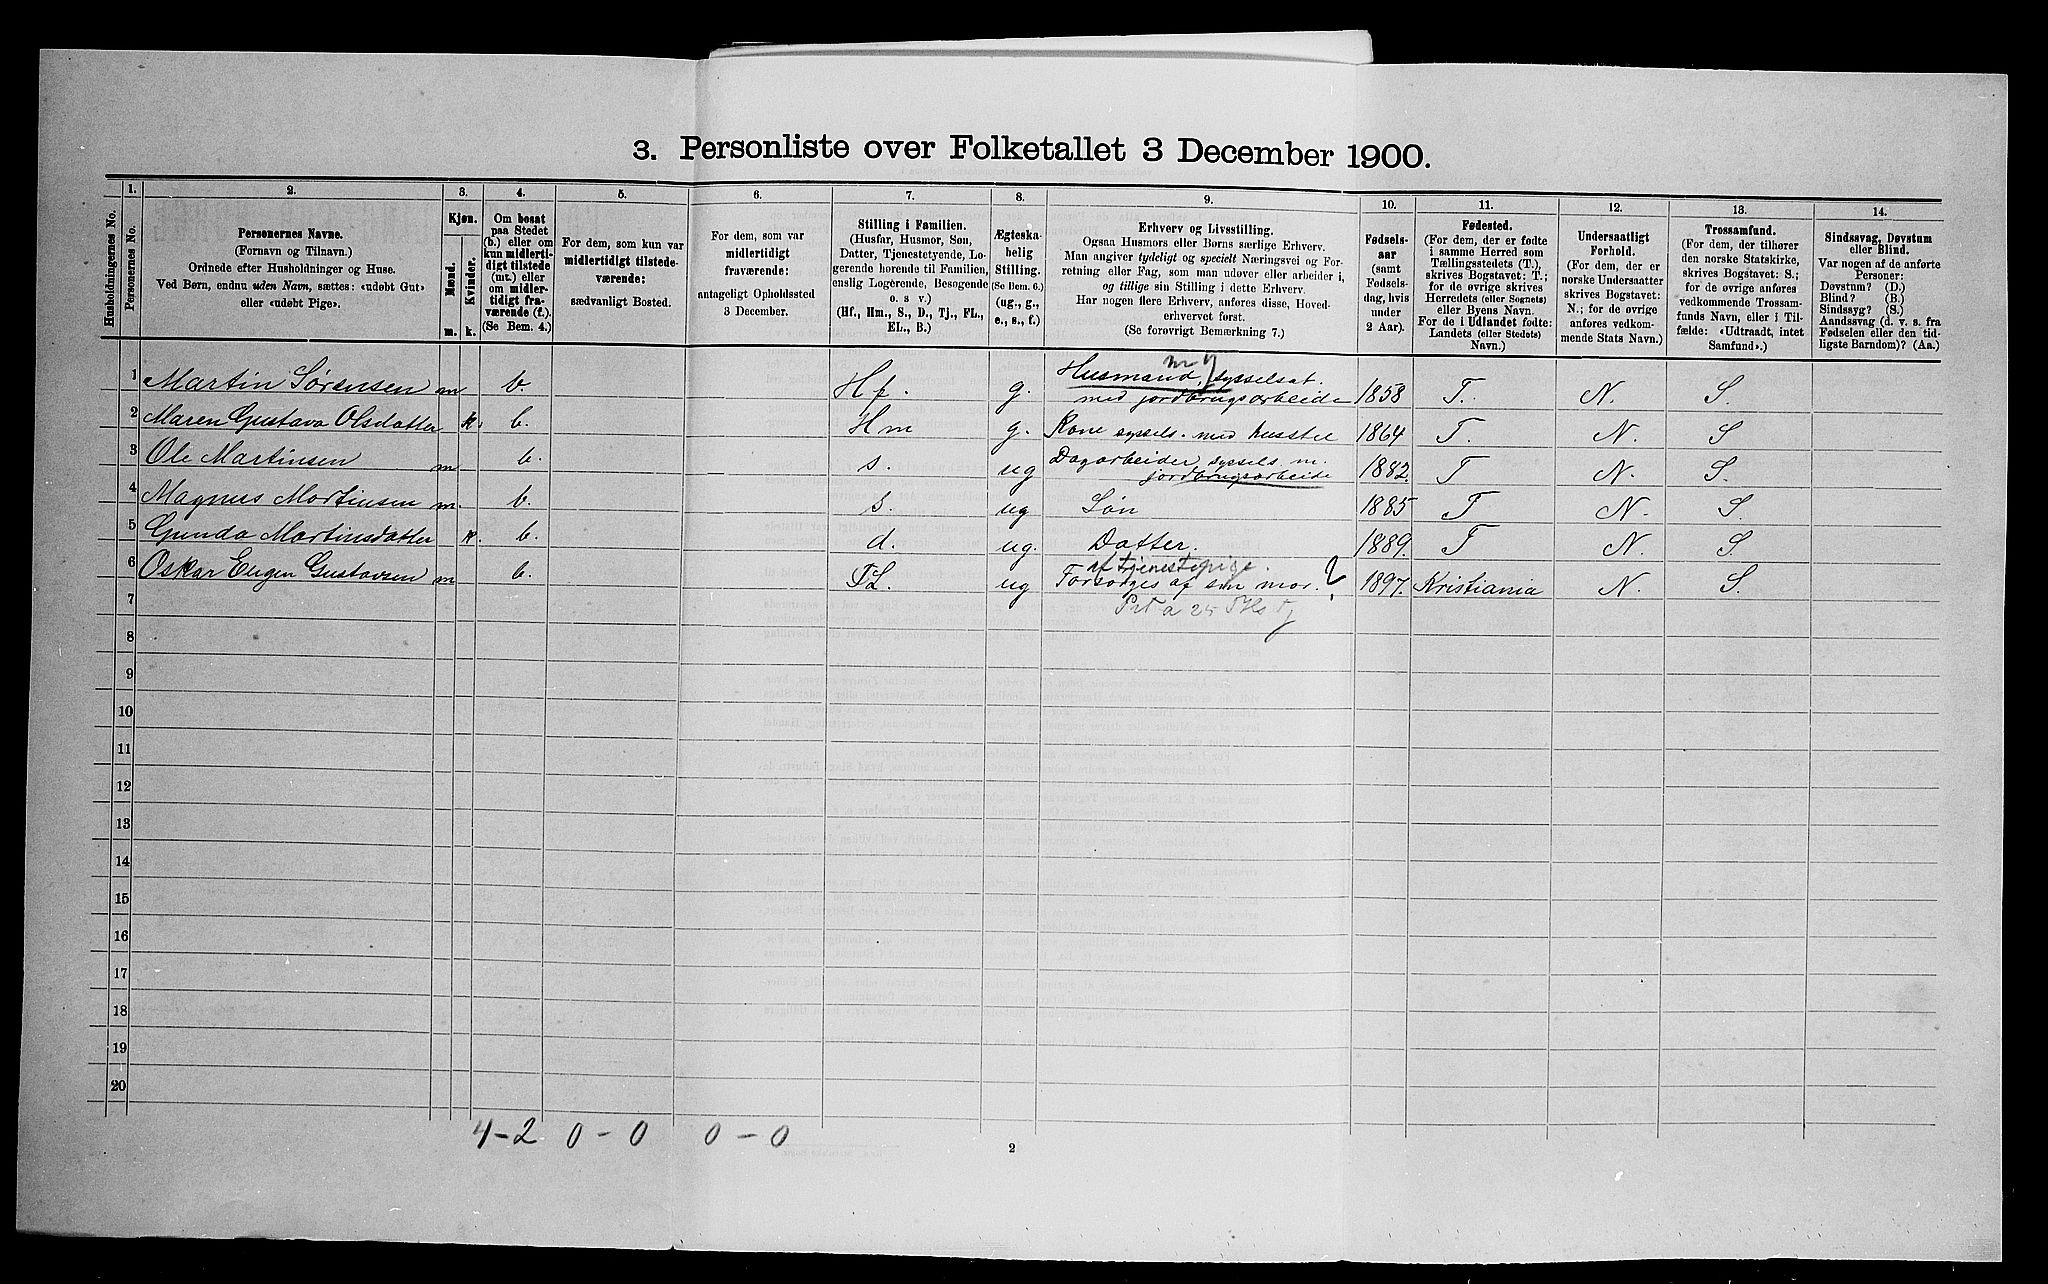 3. Personliste over Folketallet 3 December 1900.
1. 2. 3. 4. 5. 6. 7. 8. 9. 10. 11. 12. 13. 14.
Husholdningernes No.
Personernes No.
Personernes Navne.
(Fornavn og Tilnavn.)
Ordnede efter Husholdninger og Huse.
Ved Børn, endnu uden Navn, sættes: «udøbt Gut»
eller «udøbt Pige».
Kjøn.
Mænd.
Kvinder.
m. k.
Om bosat
paa Stedet
(b.) eller om
kun midlerti-
digt tilstede
(mt.) eller
om midler-
tidigt fra-
værende (f.).
(Se Bem. 4.)
For dem, som kun var
midlertidigt tilstede-
værende:
sædvanligt Bosted.
For dem, som var
midlertidigt
fraværende:
antageligt Opholdssted
3 December.
Stilling i Familien.
(Husfar, Husmor, Søn,
Datter, Tjenestetyende, Lo-
gerende hørende til Familien,
enslig Logerende, Besøgende
o. s. v.)
(Hf., Hm., S., D., Tj., FL.,
EL., B.)
Ægteska-
belig
Stilling.
(Se Bem. 6.)
(ug., g.,
e., s., f.)
Erhverv og Livsstilling.
Ogsaa Husmors eller Børns særlige Erhverv.
Man angiver tydeligt og specielt Næringsvei og For-
retning eller Fag, som man udøver eller arbeider i,
og tillige sin Stilling i dette Erhverv.
Har nogen flere Erhverv, anføres disse, Hoved-
erhvervet først.
(Se forøvrigt Bemærkning 7.)
Fødsels-
aar
(samt
Fødsels-
dag, hvis
under
2 Aar).
Fødested.
(For dem, der er fødte
i samme Herred som
Tællingsstedets (T.),
skrives Bogstavet: T.;
for de øvrige skrives
Herredets (eller Sognets)
eller Byens Navn.
For de i Udlandet fødte:
Landets (eller Stedets)
Navn.)
Undersaatligt
Forhold.
(For dem, der er
norske Undersaatter
skrives Bogstavet:
N.; for de øvrige
anføres vedkom-
mende Stats Navn.)
Trossamfund.
(For dem, der tilhører
den norske Statskirke,
skrives Bogstavet: S.;
for de øvrige anføres
vedkommende Trossam-
funds Navn, eller i Til-
fælde: «Udtraadt, intet
Samfund».)
Sindssvag, Døvstum
eller Blind.
Var nogen af de anførte
Personer:
Døvstum? (D.)
Blind? (B.)
Sindssyg? (S.)
Aandssvag (d. v. s. fra
Fødselen eller den tid-
ligste Barndom)? (Aa.)
my
1 Martin Sørensen m b. Hf. g. Husmand, sysselsat. 1858 T. N. S.
med jordbrugsarbeide
2 Maren Gustava Olsdatter k. b. Hm g. Kone syssels. med husstel 1864 T. N. S
3 Ole Martinsen m b. s. ug Dagarbeider syssels m. 1882. T N. S.
jordbrugsarbeide
4 Magnus Martinsen m. b. s. ug Søn 1885 T N. S.
5 Gunda Martinsdatter k. b. d. ug. Datter. 1889. T N. S.
tjenestepige.
6 Oskar Eugen Gustavsen m b. FL. ug Forsørges af sin mor. ? 1897. Kristiania N. S.
7
8
9
10
11
12
13
14
15
16
17
18
19
20
4-2 0-0 0-0
2